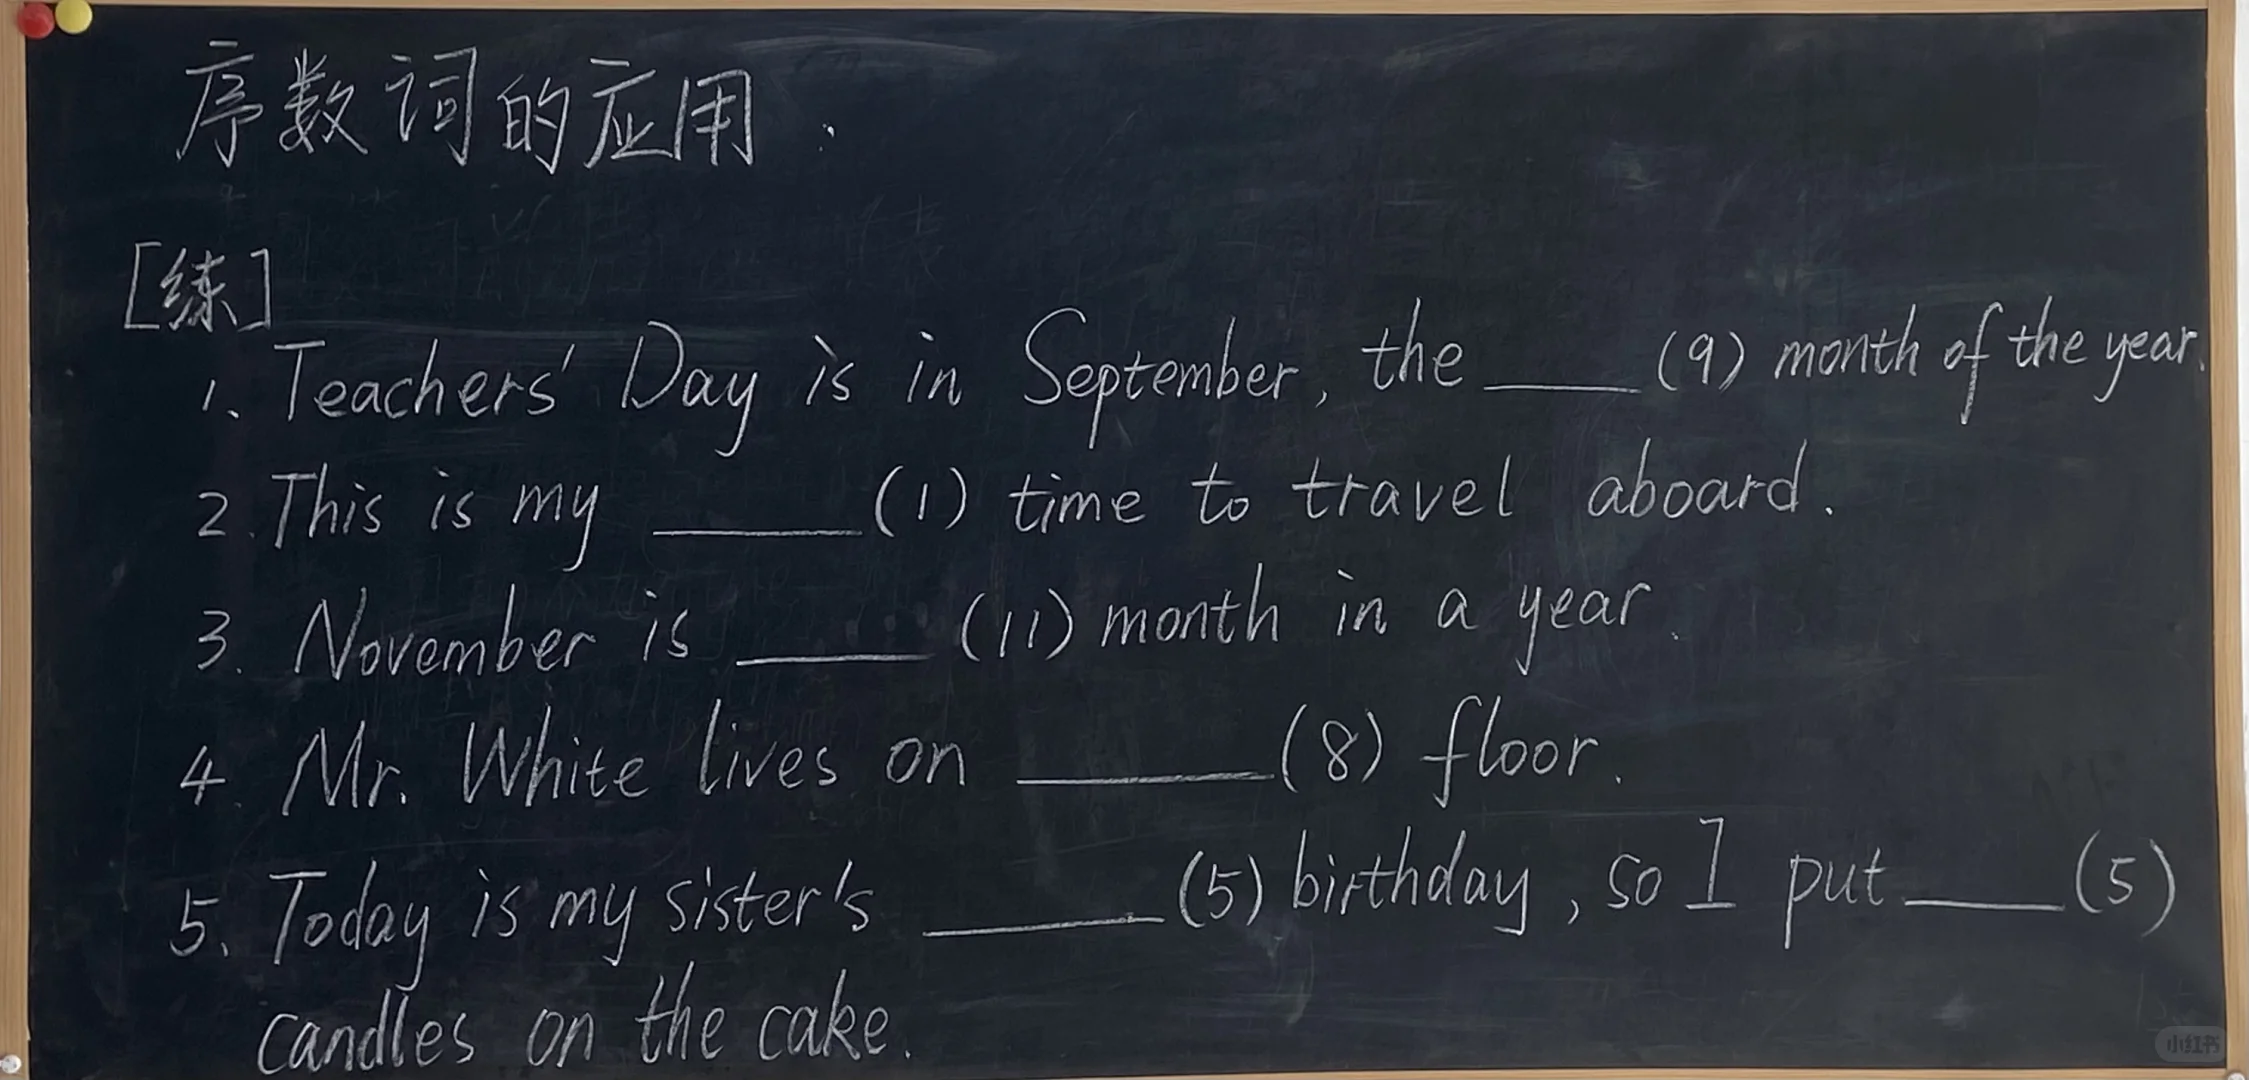 序数词的应用:
[练]
1、Teachers' Day is in September, the ____ (9) month of the year.
2. This is my ____ (1) time to travel aboard.
3. November is ____ (11) month in a year.
4. Mr. White lives on ____ (8) floor.
5、Today is my sister's ____ (5) birthday, so I put ____ (5)
candles on the cake.
小红书